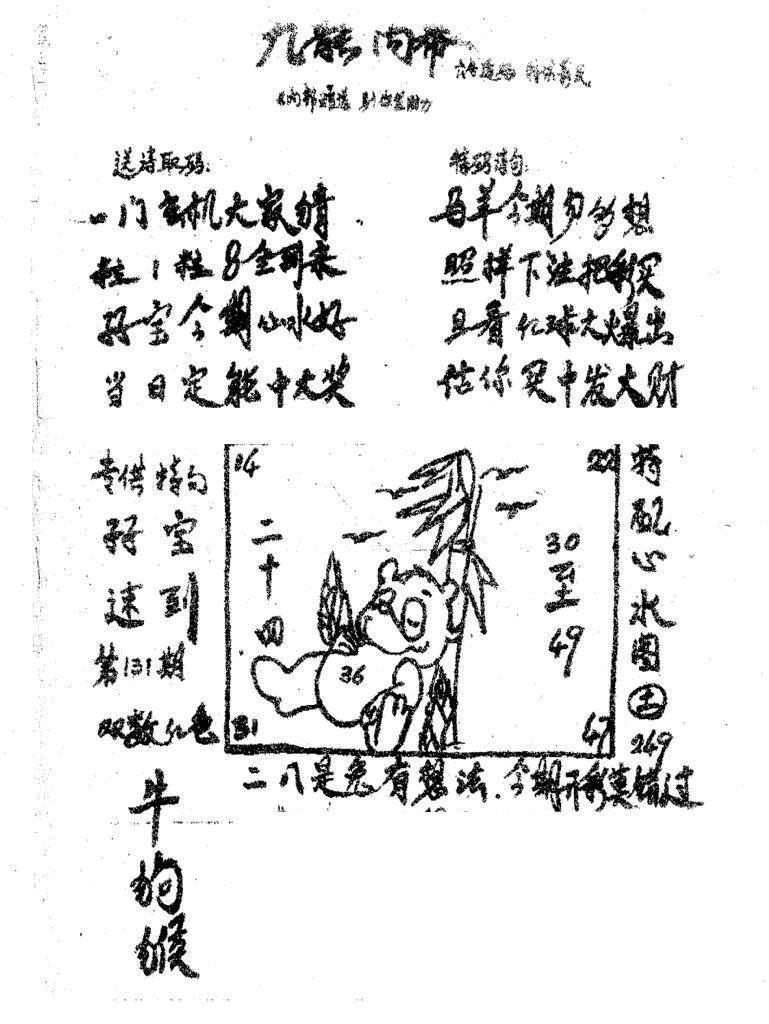 九龍内幕
送诗取码:
特码诗句:
一门玄机大家猜
粒1粒8全到来
好宝今期仙水好
当日定能中大奖
马羊今期勿多想
照样下注把彩买
且看红球大爆出
估你买中发大财
专供特句
好宝
速到
第131期
双数红色
牛
狗
猴
14
22
二十四
30至49
36
31
47
特配心水图
土
249
二八是兔有想法.今期开彩莫错过